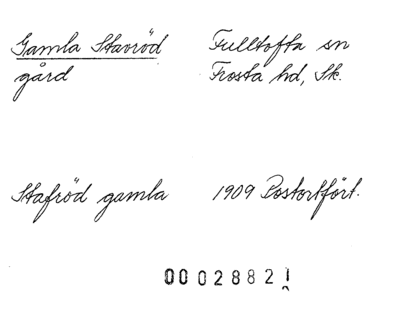 Gamla Stavröd Fulltofta sn
gård Frosta hd, Sk.
Stafröd gamla 1909 Postortfört.
00028821